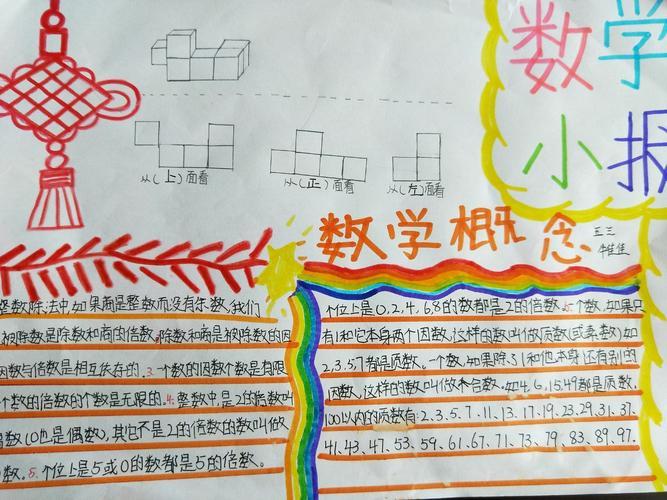 数学
小报
从(上)面看
从(正)面看
从(左)面看
数学概念
五三
整数除法中,如果商是整数而没有余数,我们
被除数是除数和商的倍数,除数和商是被除数的因
因数与倍数是相互依存的.3.一个数的因数个数是有限
个数的倍数的个数是无限的.4.整数中,是2的倍数叫
数(0也是偶数),其它不是2的倍数的数叫做
数。5.个位上是5或0的数都是5的倍数。
个位上是0,2,4,6,8的数都是2的倍数.6.个数,如果只
有1和它本身两个因数,这样的数叫做质数(或素数)如
2,3,5,7都是质数。一个数,如果除了1和他本身还有别的
因数,这样的数叫做木合数。如4,6,15,49都是质数,
100以内的质数有:2,3,5,7,11,13,17,19,23,29,31,37,
41,43,47,53,59,61,67,71,73,79,83,89,97.